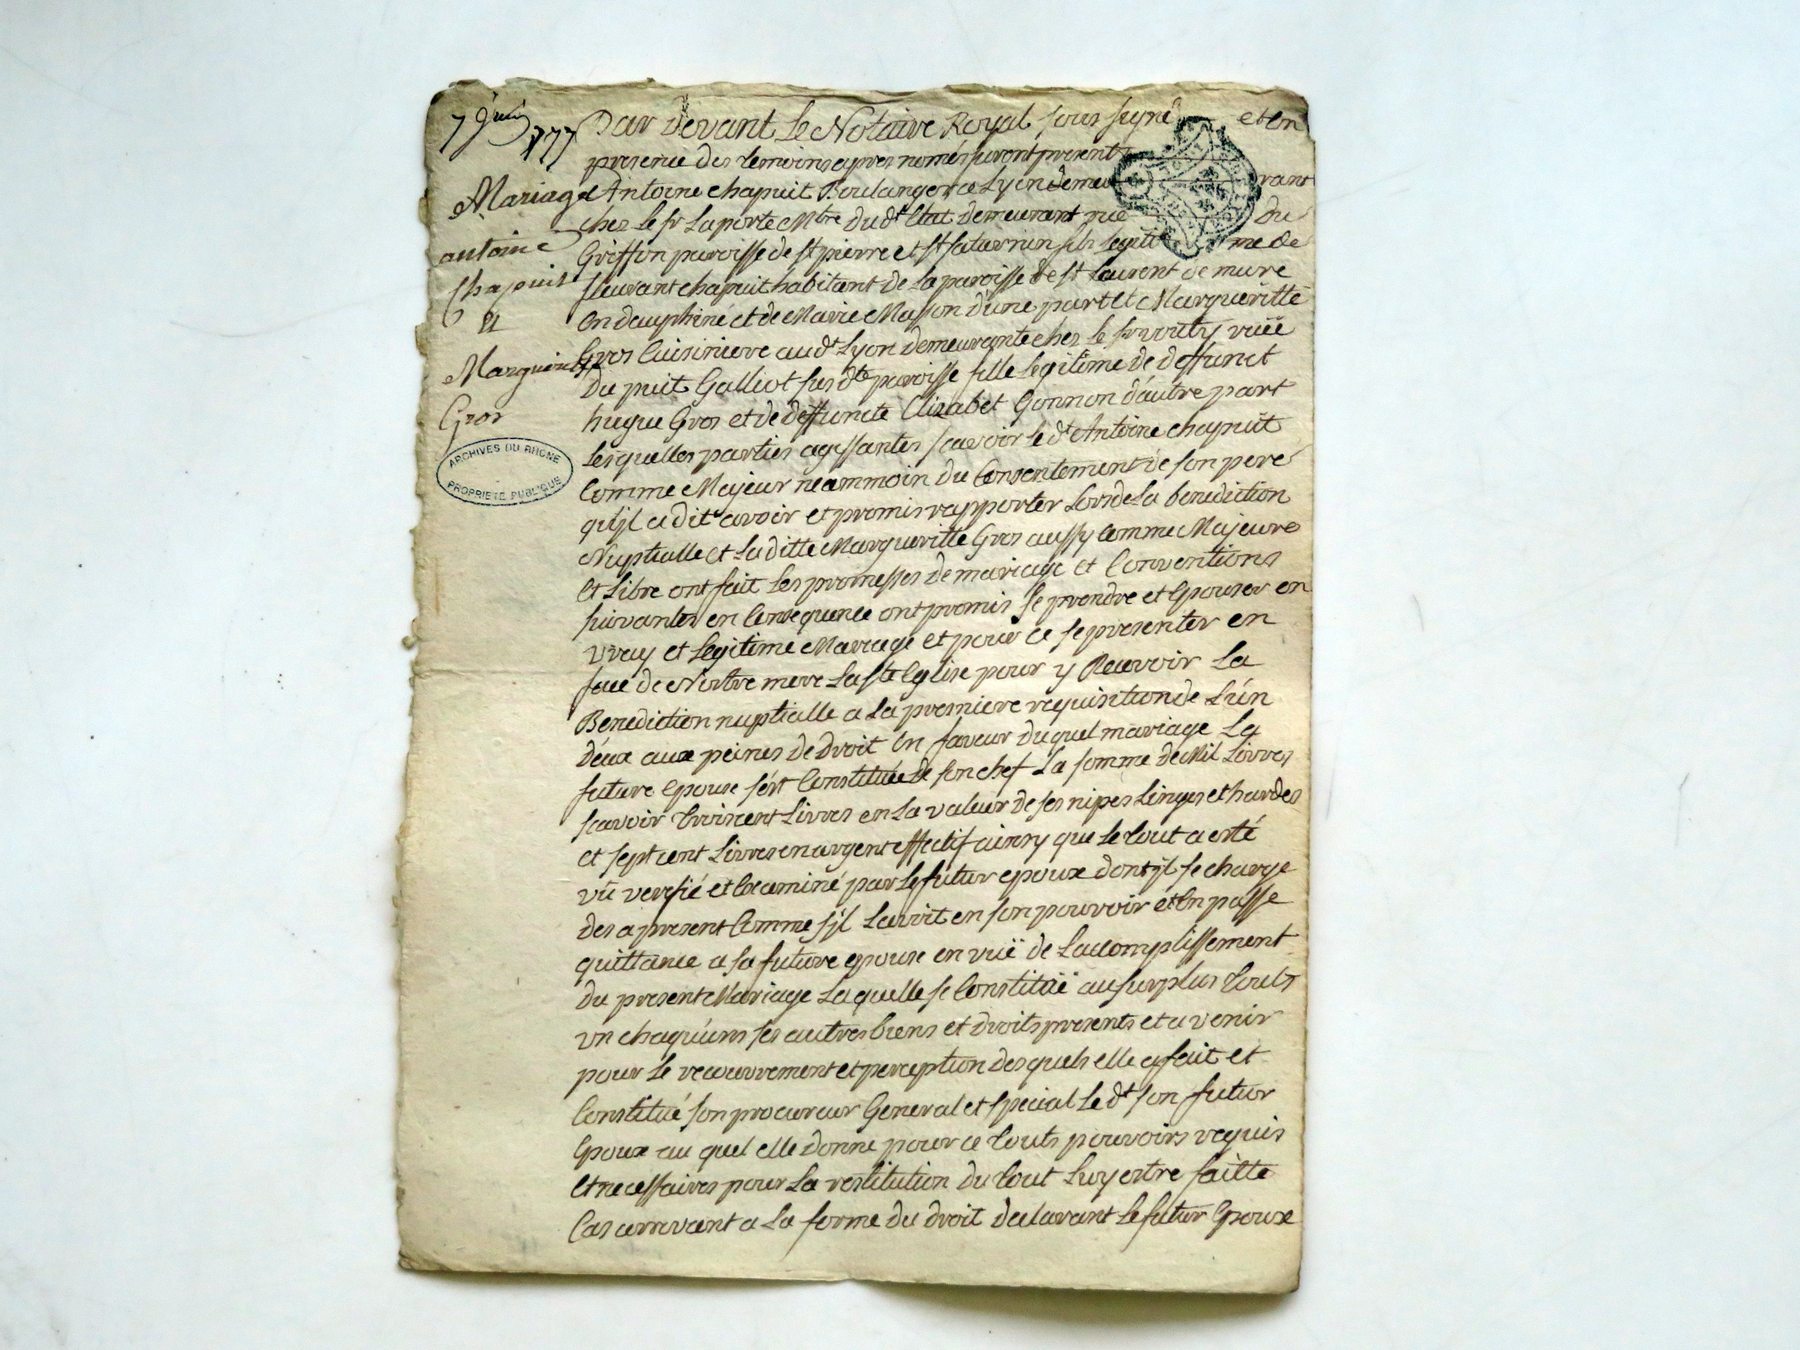 7 Juin 177
Mariage
antoine
Chapuit
Et
Marguerite
Gros
ARCHIVES DU RHONE
PROPRIETE PUBLIQUE
Par devant Le Notaire Royal sous signé et en
presence des temoins apres només furent presents
Antoine chapuit Boulanger a Lyon demeurant
chez le sr Laporte Mtre dudt Etat demeurant rue du
Griffon paroisse de st pierre et st saturnin fils legitime de
fleurant chapuit habitant de la paroisse de st Laurent de mure
en dauphiné et de Marie Masson d'une part et Margueritte
Gros Cuisiniere audt Lyon demeurante chez le sr ruë
du puit Gaillot susdte paroisse fille legitime de deffunct
hugue Gros et de deffuncte Elizabet Gonnon d'autre part
Lesquelles parties agissantes scavoir le dt Antoine chapuit
Comme Majeur neammoin du Consentement de son pere
qu'jl a dit avoir et promis rapporter Lors de La benediction
Nuptialle et La ditte Margueritte Gros aussy comme Majeure
Et Libre ont fait Les promesses de mariage et Conventions
suivantes en Consequence ont promis se prendre et Epouser en
vray et Legitime Mariage et pour ce se presenter en
face de Nostre mere La ste Eglise pour y Recevoir La
Benediction nuptialle a La premiere requisition de L'un
deux aux peines de droit En faveur du quel mariage La
future Epouse s'est Constituée de son chef La somme de Mil Livres
scavoir troiscent Livres en La valeur de ses nipes Linges et hardes
et sept cent Livres en argent effectif ainsy que Le tout a esté
vû verifié et Examiné par Le futur epoux dont jl se charge
des a present Comme s'jl Lavoit en son pouvoir et En passe
quittance a sa future epouse en vuë de Lacomplissement
du present Mariage Laquelle se Constituë au surplus touts
un chaquuns ses autres biens et droits presents et a venir
pour Le recouvrement et perception desquels elle a fait et
Constitué son procureur General et special Le dt son futur
Epoux au quel elle donne pour ce touts pouvoirs requis
Et necessaires pour La restitution du tout Luy estre faitte
Cas arrivant a La forme du droit declarant Le futur Epoux